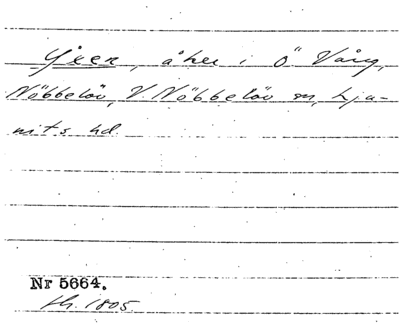 Yxen, åker i Ö Vång,
Nöbbelöv, V. Nöbbelöv sn, Lju-
nits hd.
Nr 5664.
sk. 1805.